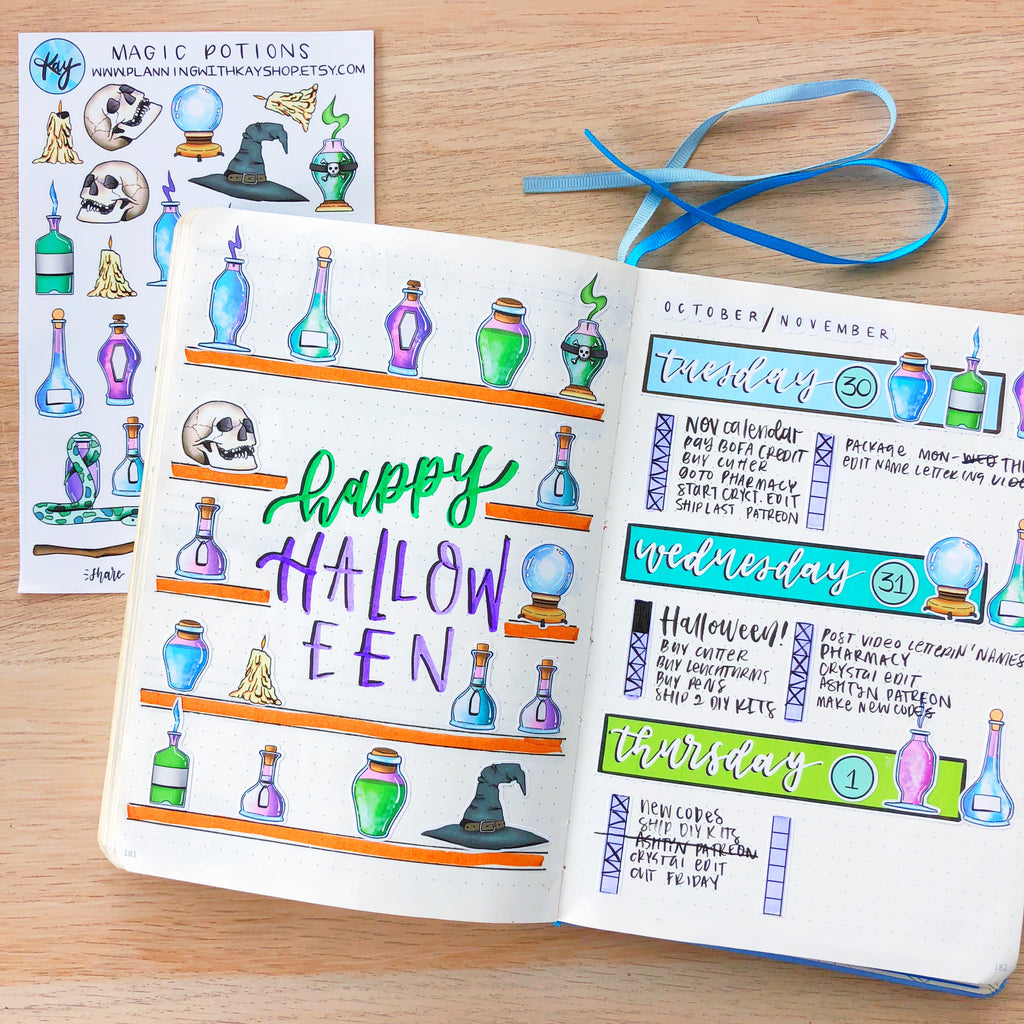 Kay
MAGIC POTIONS
WWW.PLANNINGWITHKAYSHOP.ETSY.COM
Share
happy
HALLOW
EEN
181
OCTOBER/NOVEMBER
tuesday 30
NOV calendar
PAY BOFA CREDIT
BUY CUTTER
GOTO PHARMACY
START CRYST. EDIT
SHIP LAST PATREON
PACKAGE MON-WED
EDIT NAME LETTERING
wednesday 31
Halloween!
BUY CUTTER
BUY LEUCHTTURMS
BUY PENS
SHIP 2 DIY KITS
POST VIDEO LETTERIN' NAMES
PHARMACY
CRYSTAL EDIT
ASHTYN PATREON
MAKE NEW CODES
thursday 1
NEW CODES
SHIP DIY KITS
ASHTYN PATREON
CRYSTAL EDIT
OUT FRIDAY
182